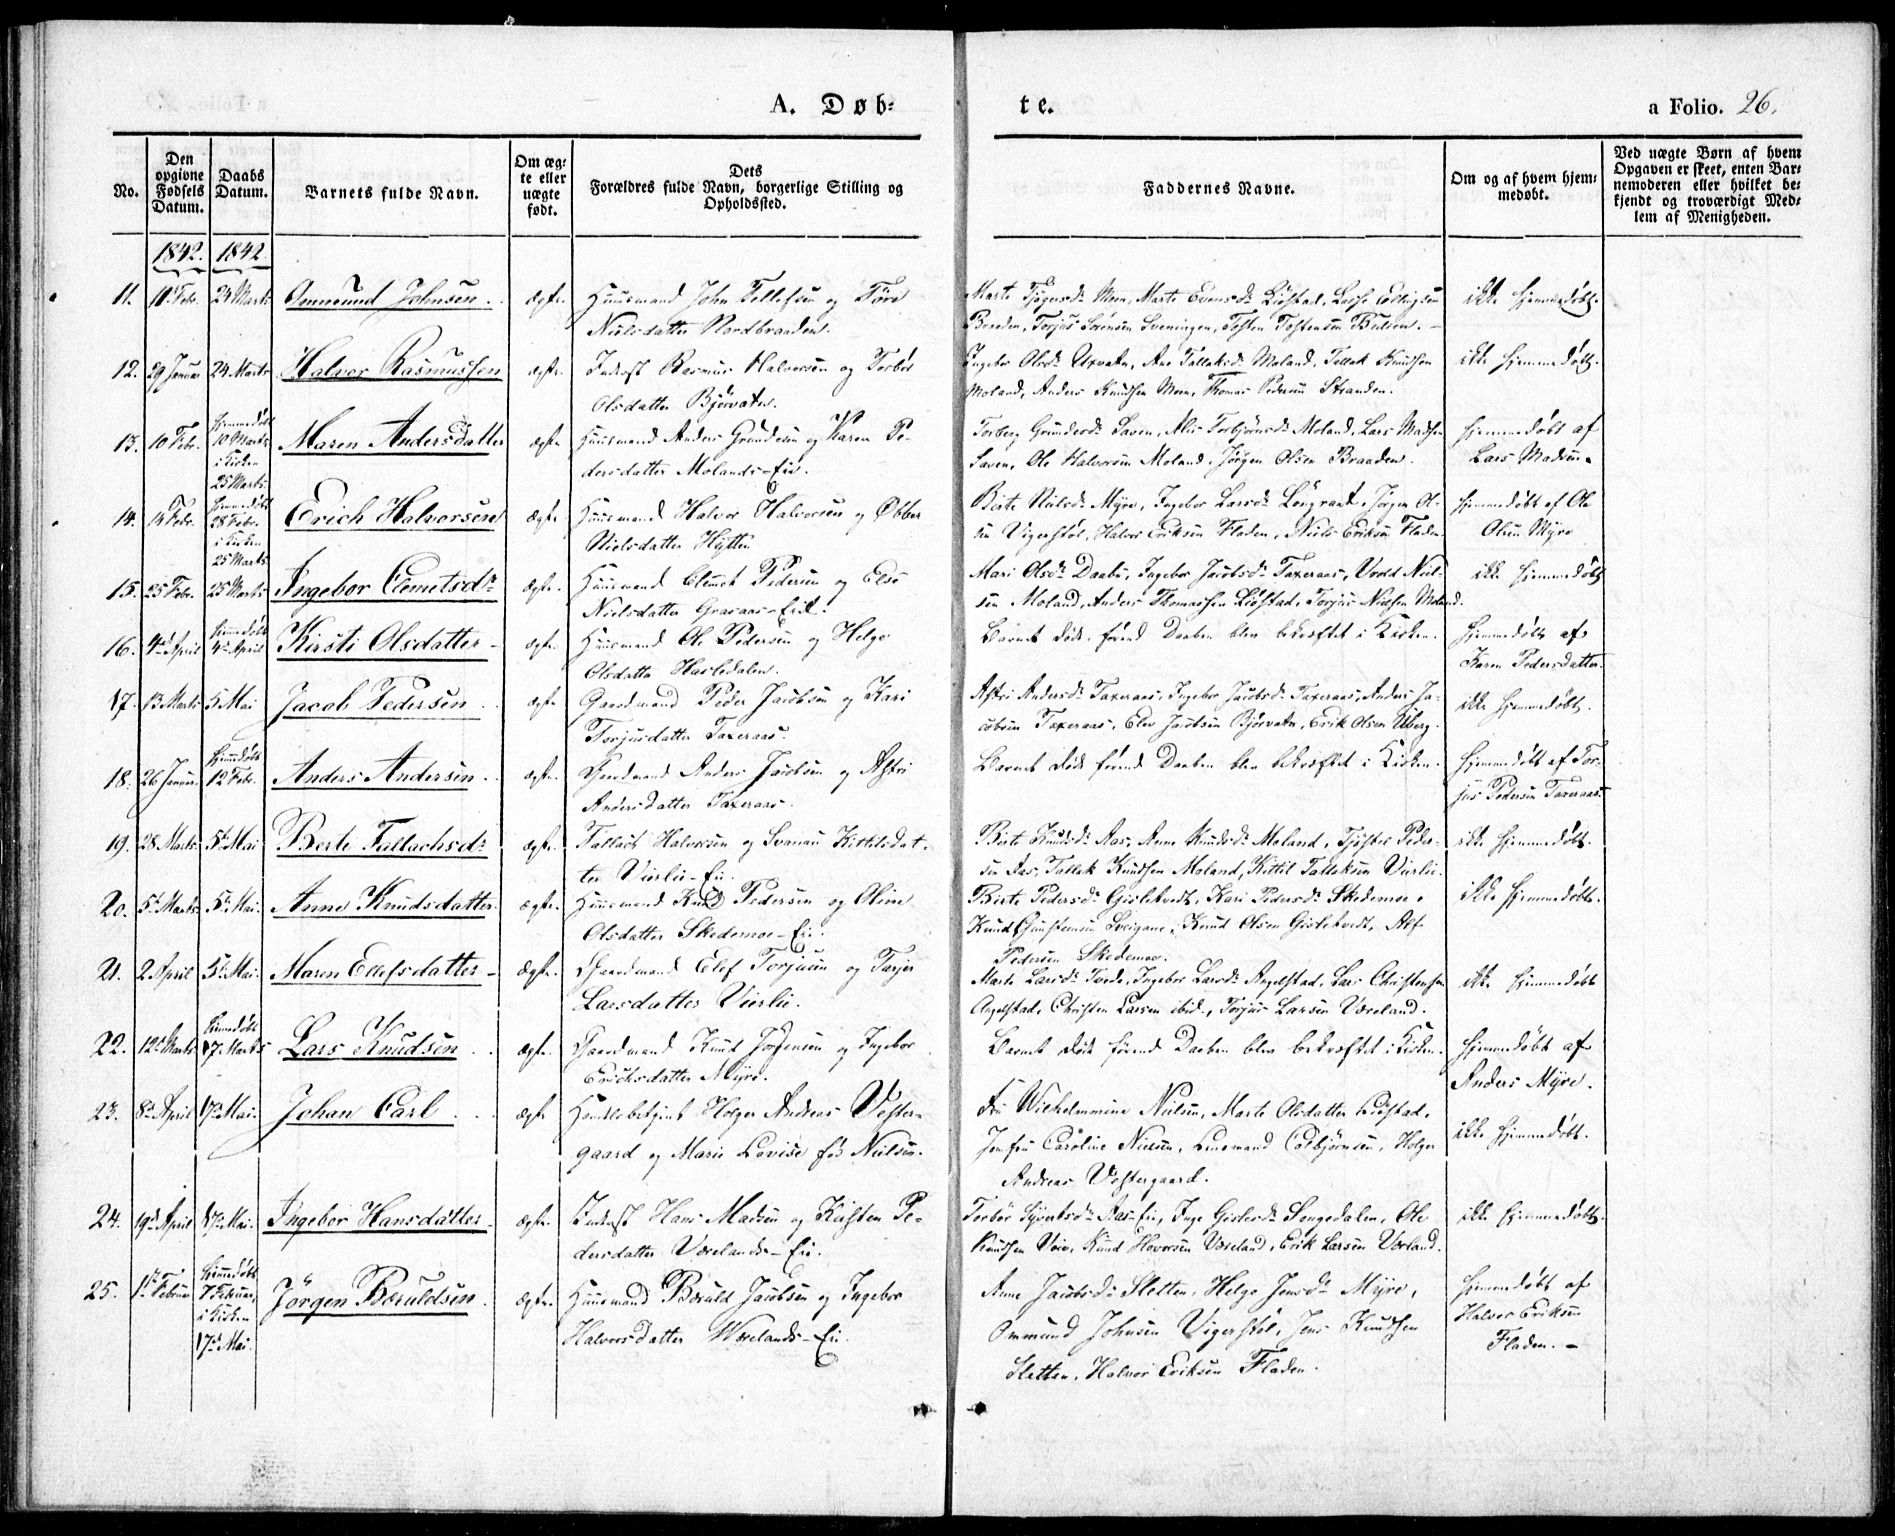 A. Døb=
te.
a Folio. 26.
No.
Den
opgivne
Fødsels
Datum.
Daabs
Datum.
Barnets fulde Navn.
Om æg=
te eller
uægte
født.
Dets
Forældres fulde Navn, borgerlige Stilling og
Opholdssted.
Faddernes Navne.
Om og af hvem hjem=
medøbt.
Ved uægte Børn af hvem
Opgaven er skeet, enten Bar=
nemoderen eller hvilket be=
kjendt og troværdigt Med=
lem af Menigheden.
1842. 1842.
11. 10 Febr. 24 Marts Ommund Johnsen. ægte. Huusmand John Tellefsen og Töre
Nielsdatter Nordbraaden.
Marte Olsd. Moen, Marte Evensd. Liöstad, Lasse Ellingsen
Braaden, Torjus Sörensen Sveningen, Tosten Tostensen Bulien.
ikke hjemmedöbt.
12. 29 Januar 24 Marts Halvor Rasmussen ægte. Inderst Rasmus Halvorsen og Torbör
Olsdatter Björvatn.
Ingebor Olsd. Uxvatn, Ane Tallaksd. Moland, Tellak Knudsen
Moland, Anders Knudsen Moen, Thomas Pedersen Stranden.
ikke hjemmedöbt.
13. 10 Febr. hjemmedöbt
10 Marts
i Kirken
25 Marts
Maren Andersdatter ægte. Huusmand Anders Gundersen og Karen Pe-
dersdatter Molands-Eie.
Torberg Gundersd. Saven, Alis Torbjörnsd. Moland, Lars Madsen
Saven, Ole Halvorsen Moland, Jörgen Olsen Braaden.
hjemmedöbt af
Lars Madsen.
14. 14 Febr. hjemmedöbt
28 Febr.
i Kirken
25 Marts
Erich Halvorsen ægte. Huusmand Halvor Halvorsen og Ebber
Nielsdatter Hytten
Berte Nielsd. Myre, Ingebor Larsd. Löngraat, Jörgen Ol-
sen Vigerstöl, Halvor Eriksen Fladen, Niels Eriksen Fladen.
hjemmedöbt af Ole
Olsen Myre
15. 25 Febr. 25 Marts Ingebor Clemetsd. ægte. Huusmand Clemet Pedersen og Else
Nielsdatter Graraas-Eie.
Mari Olsd. Daabu, Ingebor Jacobsd. Taxeraas, Wrold Niel-
sen Moland, Anders Thomassen Liöstad, Torjus Nielsen Moland.
ikke hjemmedöbt
16. 4de April hjemmedöbt
4de April
Kirsti Olsdatter ægte. Huusmand Ole Pedersen og Helge
Olsdatter Hasledalen.
Barnet döde, förend Daaben blev bekræftet i Kirken.
hjemmedöbt af
Karen Pedersdatter.
17. 13 Marts 5 Mai Jacob Pedersen ægte Gaardmand Peder Jacobsen og Kari
Torjusdatter Taxeraas.
Astri Andersd. Taxeraas, Ingebor Jacobsd. Taxeraas, Anders Ja-
cobsen Taxeraas, Elev Jacobsen Björvatn, Erik Olsen Uberg.
ikke hjemmedöbt.
18. 26 Januar. hjemmedöbt
12 Febr.
Anders Andersen. ægte. Gaardmand Anders Jacobsen og Astri
Andersdatter Taxeraas.
Barnet döde förend Daaben blev bekræftet i Kirken.
hjemmedöbt af Tor-
jus Pedersen Taxeraas.
19. 28 Marts 5te Mai Berte Tallachsd. ægte. Tallach Halvorsen og Svanau Kittilsdat-
ter Vierlie-Eie.
Berte Knudsd. Aas, Anne Knudsd. Moland, Tjöstel Peder-
sen Aas, Tallak Knudsen Moland, Kittil Tallaksen Vierlie.
ikke hjemmedöbt.
20. 5te Marts 5te Mai. Anne Knudsdatter. ægte. Huusmand Knud Pedersen og Oline
Olsdatter Skedemoe-Eie.
Berte Pedersd. Gislekvedt, Kari Pedersd. Skedemoe,
Knud Chrestensen Sveigane, Knud Olsen Gislekvedt, Alf
Pedersen Skedemoe.
ikke hjemmedöbt.
21. 2 April 5te Mai. Maren Ellefsdatter ægte. Gaardmand Elef Torjusen og Tarjer
Larsdatter Vierlie.
Marte Larsd. Tvede, Ingebor Larsd. Angelstad, Lars Christensen
Angelstad, Christen Larsen ibid., Torjus Larsen Væreland.
ikke hjemmedöbt
22. 12 Marts hjemmedöbt
17 Marts
Lars Knudsen ægte. Gaardmand Knud Jörgensen og Ingebor
Erichsdatter Myre.
Barnet döde förend Daaben blev bekræftet i Kirken.
hjemmedöbt af
Anders Myre.
23. 8de April 17de Mai. Johan Carl ægte Handelsbetjent Holger Andreas Vester-
gaard og Marie Lovise föd Nielsen.
Fru Wilhelmmine Nielsen, Marte Olsdatter Liöstad,
Jomfru Caroline Nielsen, Lensmand Colbjörnsen, Holger
Andreas Vestergaard.
ikke hjemmedöbt.
24. 19de April 17de Mai. Ingebor Hansdatter ægte. Inderst Hans Madsen og Kirsten Pe-
dersdatter Værelands-Eie.
Torbör Syvertsd. Aas-Eie, Inge Gislesd. Songedalen, Ole
Knudsen Voie, Knud Hovorsen Væreland, Erik Larsen Væreland.
ikke hjemmedöbt.
25. 1ste Februar hjemmedöbt
7 Februar,
i Kirken
17de Mai.
Jörgen Bæruldsen ægte. Huusmand Bæruld Jacobsen og Ingebor
Halvorsdatter Wærelands-Eie.
Anne Jacobsd. Sletten, Helge Jensd. Myre,
Ommund Johnsen Vigerstöl, Jens Knudsen
Sletten, Halvor Eriksen Fladen.
hjemmedöbt af
Halvor Eriksen
Fladen.